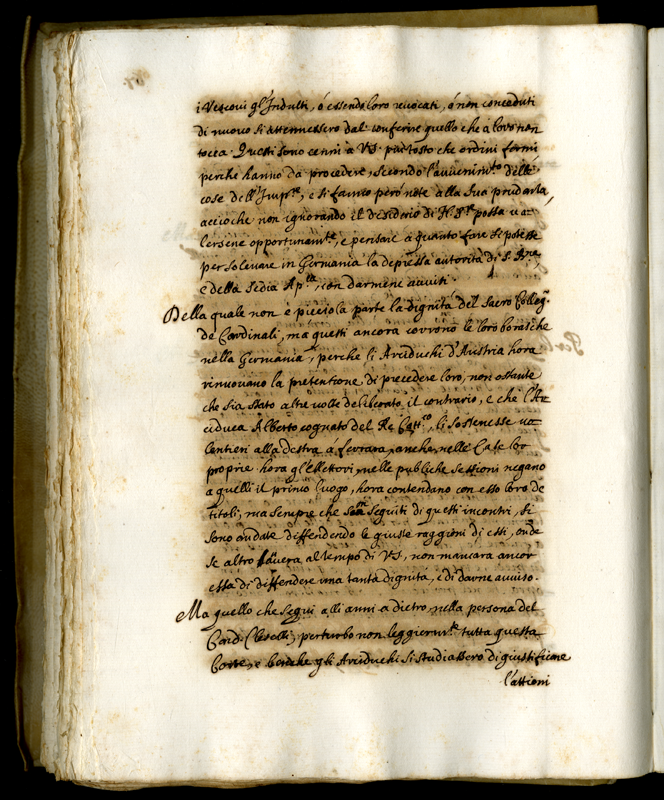 i Vescovi gl'Indulti, ó essendo loro revocati, ó non conceduti
di nuovo si attennessero dal conferire quello che à loro non
tocca. Questi sono cenni à VS. piu tosto che ordini fermi
perche hanno da procedere, secondo l'avvenim.to delle
cose dell'Imp.re, e si fanno però note alla sua prudenza,
accioche non ignorando il desiderio di N. S.re possa va=
lersene opportunam.te, e pensare à quanto fare si potesse
per solevare in Germania la depressa autorità di S. B.ne,
e della Sedia Ap.lica, con darmene avvisi.
Della quale non è picciola parte la dignità del Sacro Colleg.o
de Cardinali, ma questi ancora corrono le loro borasche
nella Germania, perche li Arciduchi d'Austria hora
rinuovano la pretentione di precedere loro, non ostante
che sia stato altre volte deliberato il contrario, e che l'Ar
ciduca Alberto cognato del Re Catt.co, li sostenesse vo=
lentieri alla destra à ferrara, anche nelle Case lor
proprie hora gl'Elettori, nelle publiche sessioni negano
a quelli il primo luogo, hora contendano con esso loro de
titoli, ma sempre che son seguiti di questi incontri, si
sono andate diffendendo le giuste raggioni di essi, onde
se altro avera al tempo di VS, non mancara ancor
essa di diffendere una tanta dignità, e di darne avviso.
Ma quello che segui alli anni a dietro nella persona del
Card. Cleselli, perturbò non leggierm.te tutta questa
Corte, e benche gli Arciduchi si studiassero di giustificare
l'attioni